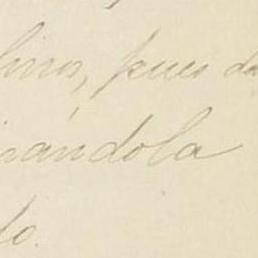 linos, pues da
rándola
do.